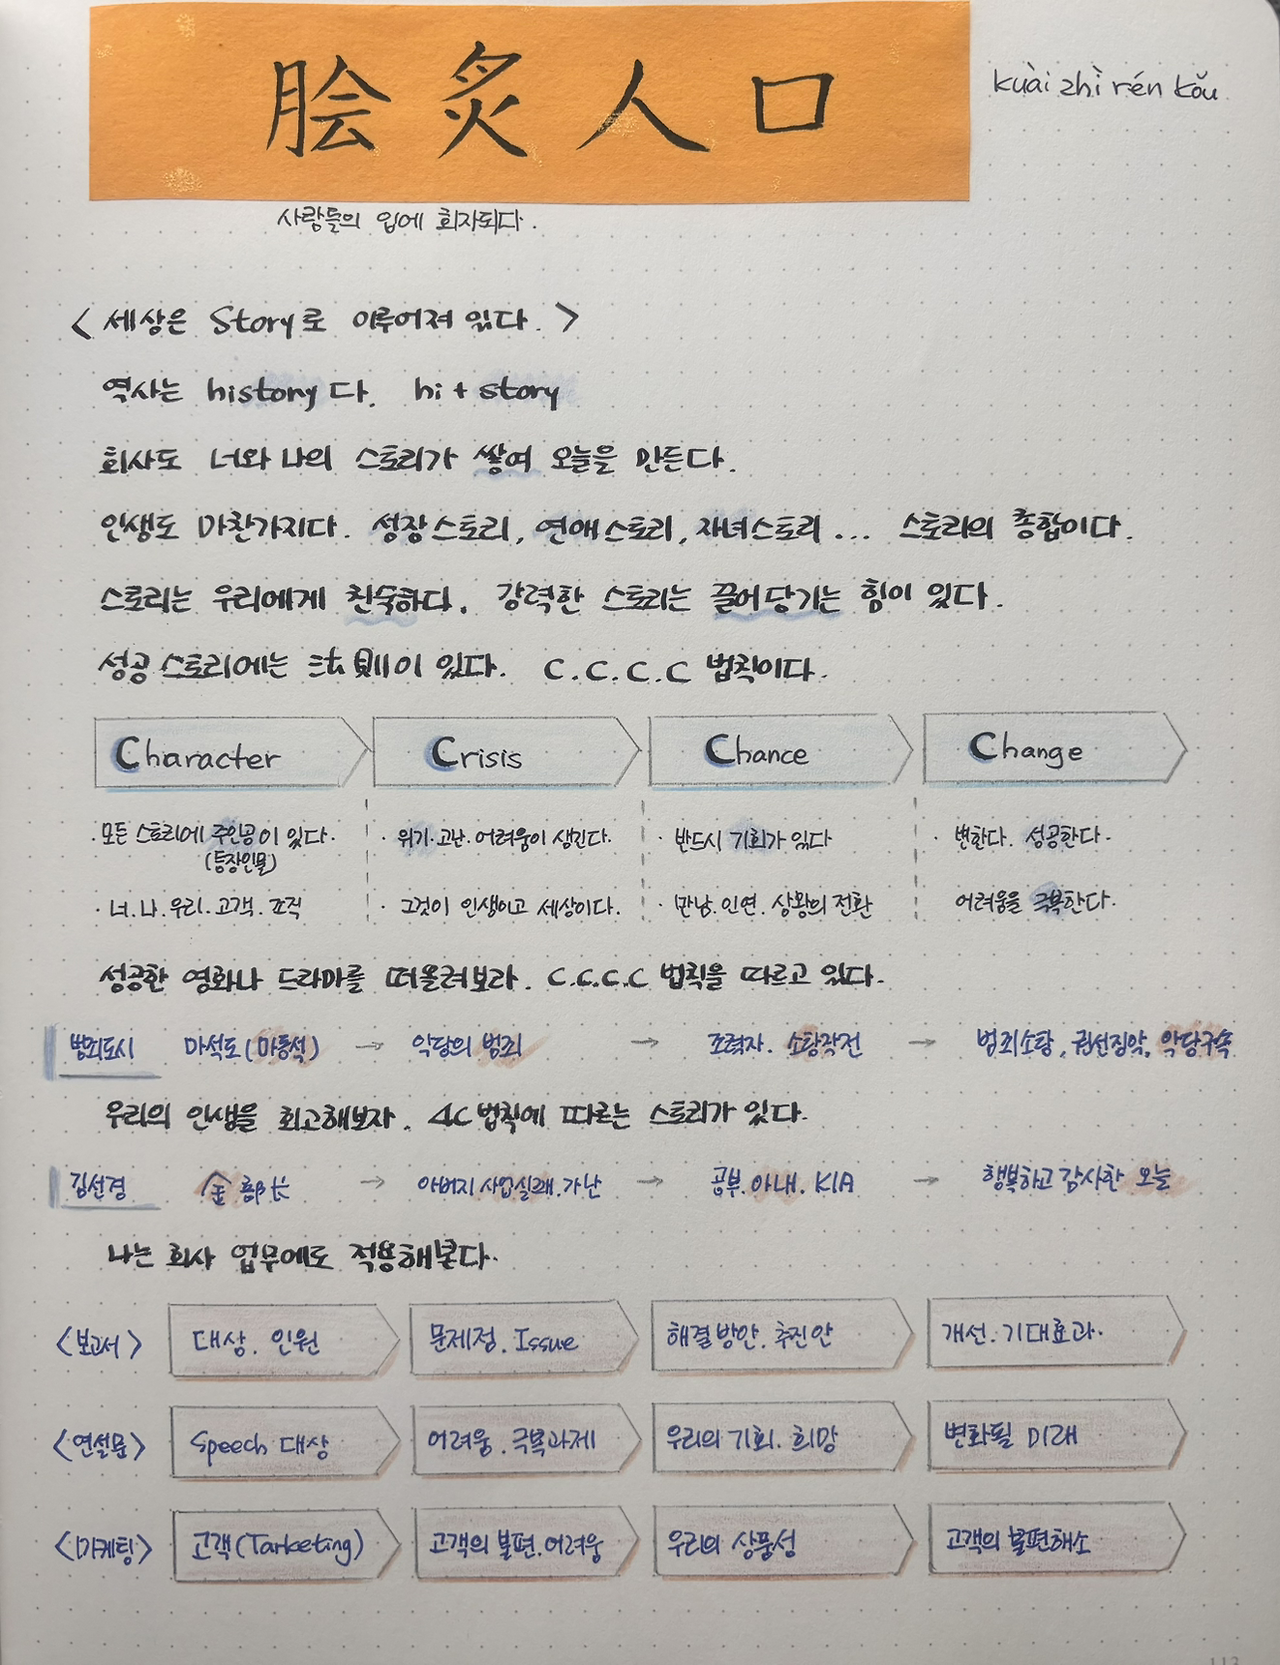 脍炙人口
kuài zhì rén kǒu
사람들의 입에 회자되다.
<세상은 Story로 이루어져 있다.>
역사는 history다. hi + story
회사도 너와 나의 스토리가 쌓여 오늘을 만든다.
인생도 마찬가지다. 성장스토리, 연애스토리, 자녀스토리... 스토리의 종합이다.
스토리는 우리에게 친숙하다. 강력한 스토리는 끌어당기는 힘이 있다.
성공 스토리에는 法則이 있다. C.C.C.C 법칙이다.
Character Crisis Chance Change
·모든 스토리에 주인공이 있다. ·위기.고난.어려움이 생긴다. ·반드시 기회가 있다 ·변한다. 성공한다.
(등장인물)
·너.나.우리.고객.조직 ·그것이 인생이고 세상이다. ·만남.인연.상황의 전환 어려움을 극복한다.
성공한 영화나 드라마를 떠올려보라. C.C.C.C 법칙을 따르고 있다.
범죄도시 마석도(마동석) → 악당의 범죄 → 조력자. 소탕작전 → 범죄소탕, 권선징악, 악당구속
우리의 인생을 회고해보자. 4C법칙에 따르는 스토리가 있다.
김선경 金部长 → 아버지 사업실패.가난 → 공부.아내.KIA → 행복하고 감사한 오늘
나는 회사 업무에도 적용해본다.
<보고서> 대상. 인원 문제점. Issue 해결방안.추진안 개선.기대효과.
<연설문> Speech 대상 어려움.극복과제 우리의 기회.희망 변화될 미래
<마케팅> 고객(Tarketing) 고객의 불편.어려움 우리의 상품성 고객의 불편해소
113